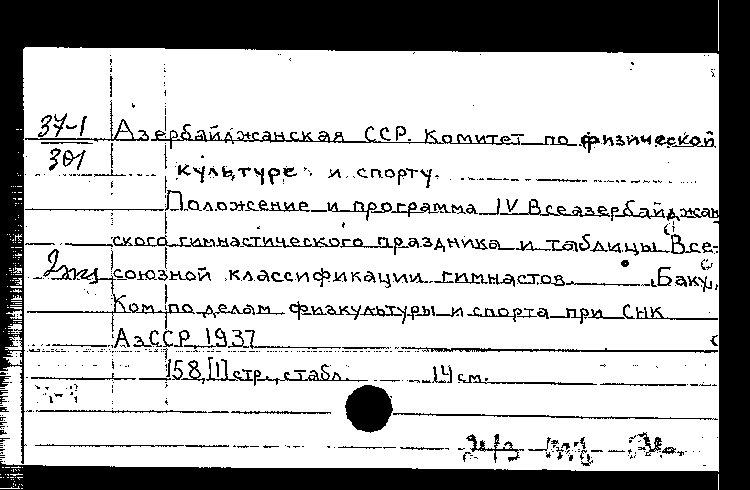 37-1 Азербайджанская ССР. Комитет по физической
301
культуре и спорту.
Положение и программа IV Всеазербайджан
ского гимнастического праздника и таблицы Все-
2экз союзной классификации гимнастов. Баку,
Ком. по делам физкультуры и спорта при СНК
АзССР, 1937
158,[1] стр., с табл. 14 см.